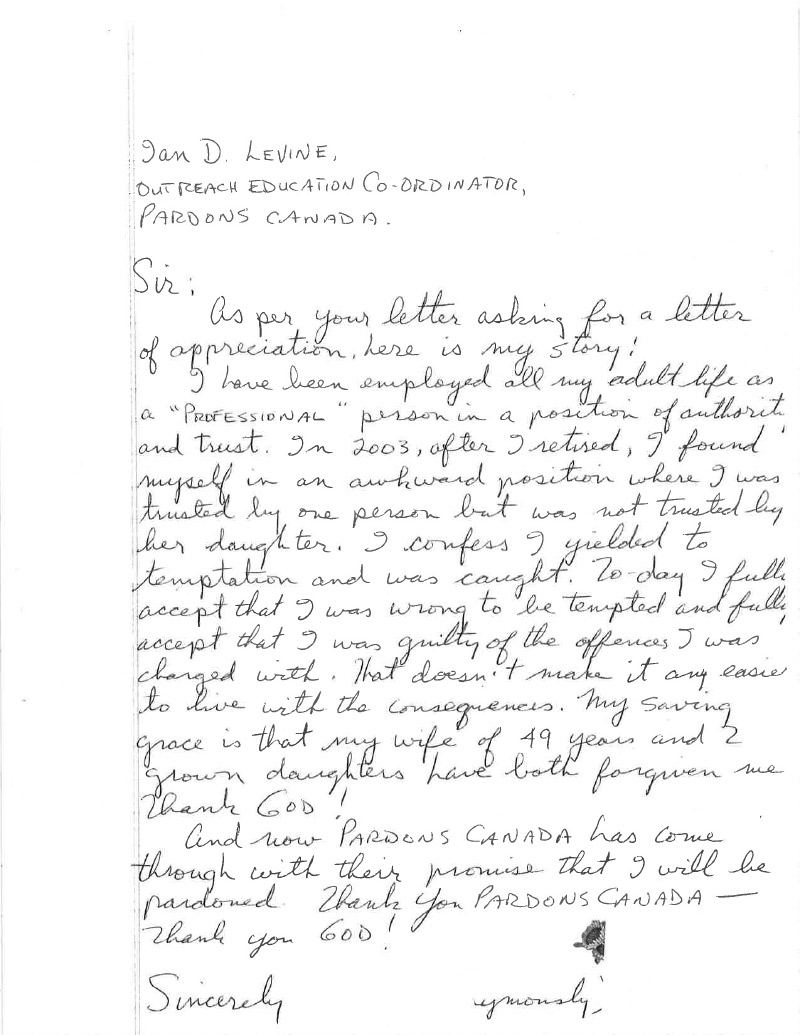 Ian D. LEVINE,
OUTREACH EDUCATION CO-ORDINATOR,
PARDONS CANADA.
Sir;
As per your letter asking for a letter
of appreciation, here is my story!
I have been employed all my adult life as
a "PROFESSIONAL" person in a position of authorit
and trust. In 2003, after I retired, I found
myself in an awkward position where I was
trusted by one person but was not trusted by
her daughter. I confess I yielded to
temptation and was caught. To-day I fully
accept that I was wrong to be tempted and fully
accept that I was guilty of the offences I was
charged with. That doesn't make it any easie
to live with the consequences. My saving
grace is that my wife of 49 years and 2
grown daughters have both forgiven me
Thank GOD!
And now PARDONS CANADA has come
through with their promise that I will be
pardoned. Thank you PARDONS CANADA —
Thank you GOD!
Sincerely ymously,